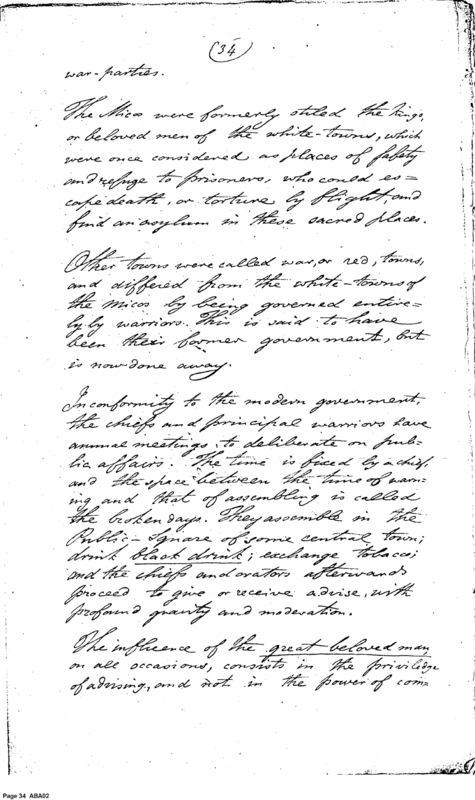 (34)
war-parties.
The Micos were formerly stiled the kings,
or beloved men of the white-towns, which
were once considered as places of safety
and refuge to prisoners, who could es=
cape death, or torture by flight, and
find an asylum in these sacred places.
Other towns were called war, or red, towns,
and differed from the white-towns of
the Micos by being governed entire=
ly by warriors. This is said to have
been their former government, but
is now done away.
In conformity to the modern government,
the chiefs and principal warriors have
annual meetings to deliberate on pub=
lic affairs. The time is fixed by a chief,
and the space between the time of warn=
ing and that of assembling is called
the broken days. They assemble in the
Public-Square of some central town;
drink black drink; exchange tobacco;
and the chiefs and orators afterwards
proceed to give or receive advise, with
profound gravity and moderation.
The influence of the great beloved man,
on all occasions, consists in the priviledge
of advising, and not in the power of com=
Page 34 ABA02